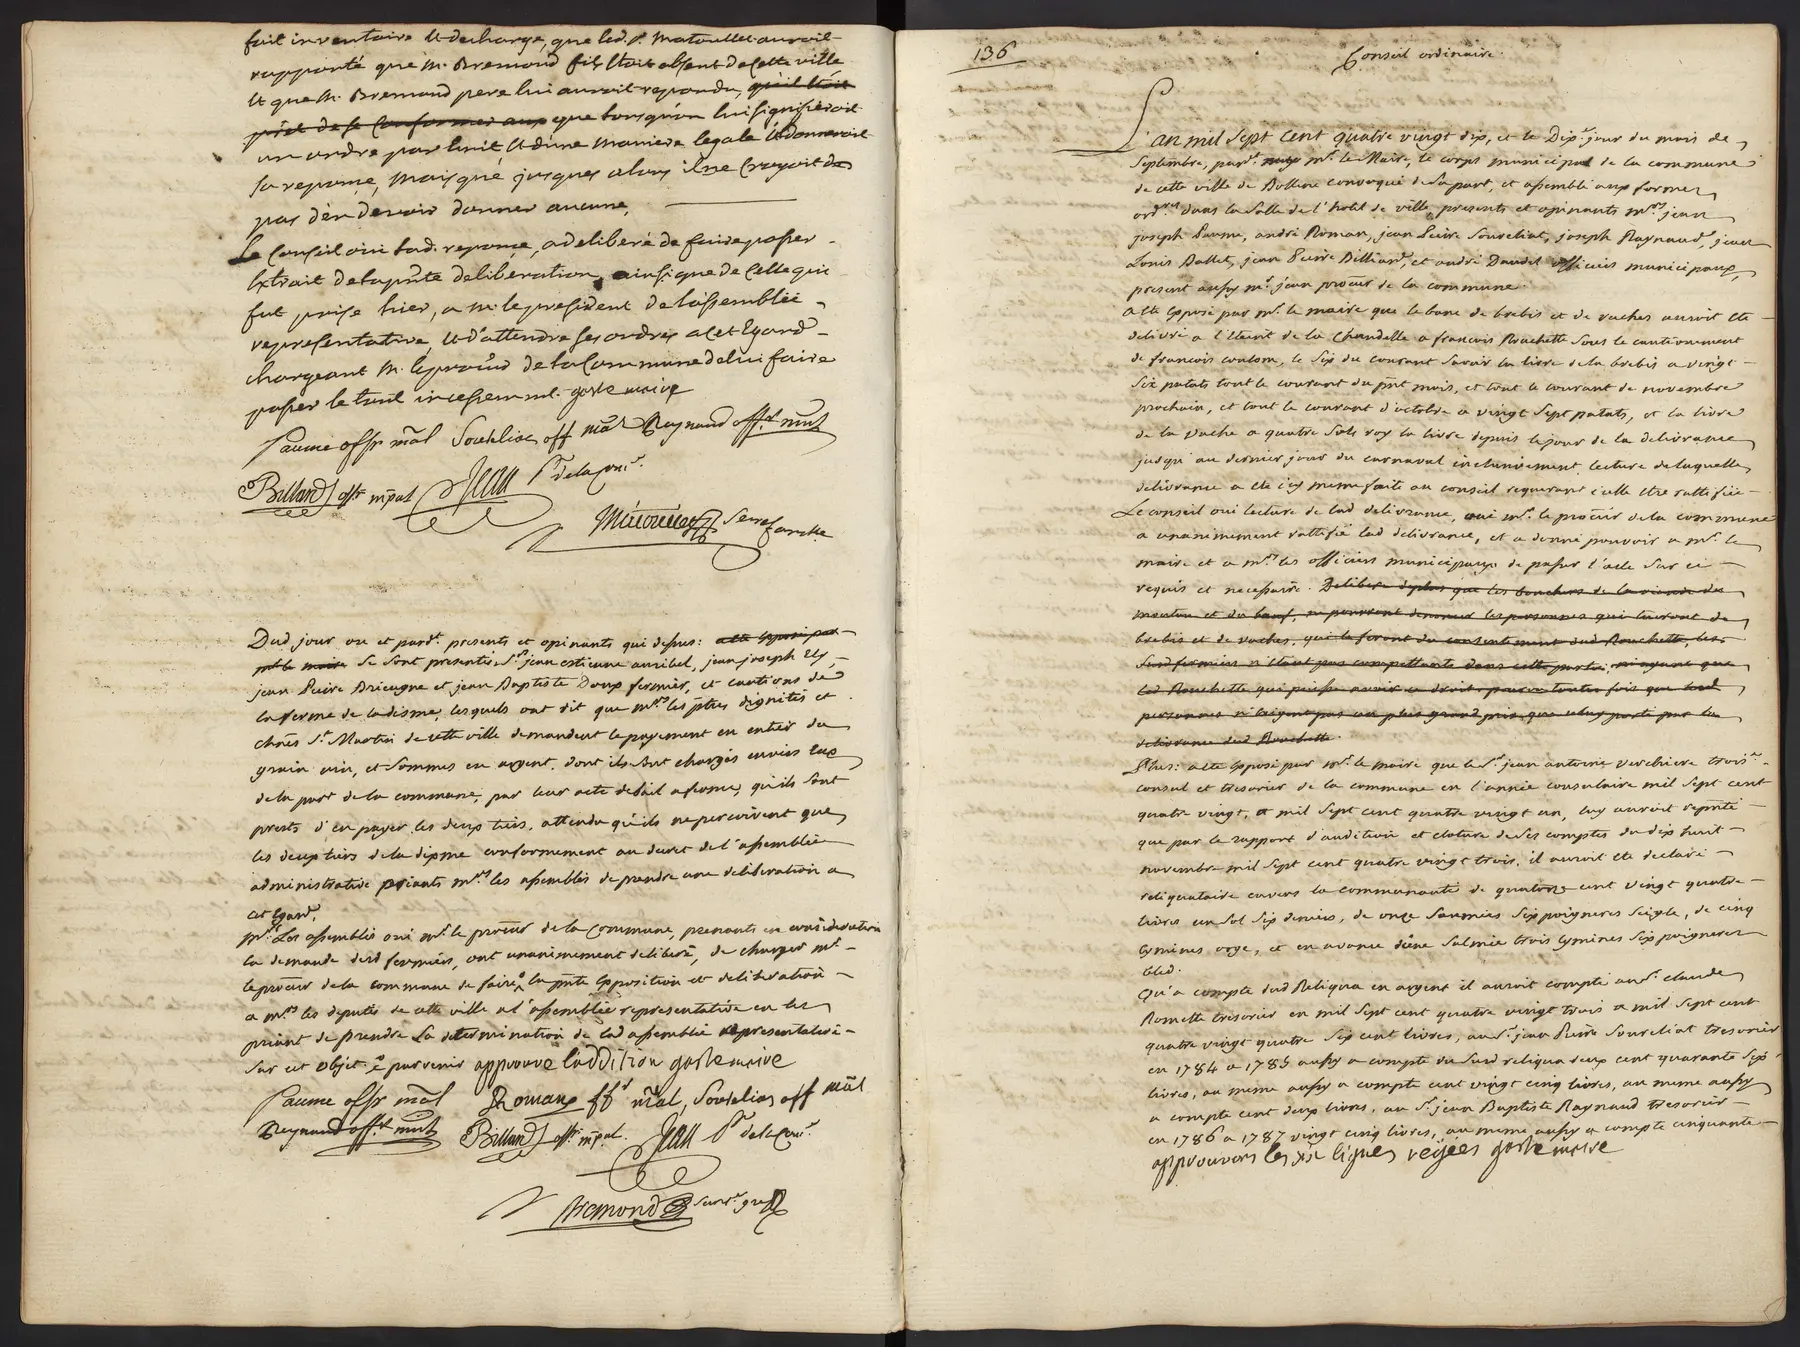 fait inventaire et decharge, que led. Sr. Matouillet auroit
rapporté que Mr. Bremond fils etoit absent de cette ville
et que Mr. Bremond pere lui auroit repondu, qu'il étoit
prêt de se conformer aux que lorsqu'on lui signifieroit
un ordre par écrit et d'une maniere legale il donneroit
sa reponse, mais que jusques alors il ne croyoit de
pas d'en devoir donner aucune,
Le Conseil oüi lad. reponse, a deliberé de faire passer
Extrait de la pnte deliberation, ainsi que de celle qui
fut prise hier, a Mr. le president de l'assemblée
representative, et d'attendre ses ordres a cet Egard
chargeant Mr. le procur de la Commune de lui faire
passer le tout incessemment. goste maire
Paume offr mal Sourelias off mal Reynaud offer. mul
Billard offr mpal Jean Pr. de la com.
Dud. jour an et pard. presents et opinants qui dessus: a eté exposé par
Mr le maire se sont presentés Srs jean estienne auribel, jean joseph Ely,
jean Pierre Bricugne et jean Baptiste Doux fermier, et cautions de
la ferme de la disme, lesquels ont dit que Mrs les ptres dignités et
chnes St. Martin de cette ville demandent le payement en entier du
grain vin, et sommes en argent, dont ils sont chargés envers eux
de la part de la commune, par leur acte de bail a ferme, qu'ils sont
prests d'en payer les deux tiers, attendu qu'ils ne percoivent que
les deux tiers de la dixme conformement au decret de l'assemblée
administrative priants Mrs les assemblés de prendre une deliberation a
cet Egard.
Mrs. Les assemblés oui Mr. le procur de la Commune, prenants en consideration
la demande desd fermiers, ont unanimement deliberé, de charger Mr.
le procur de la commune de faire la pnte Exposition et deliberation
a Mrs les deputés de cette ville a l'assemblée representative en les
priant de prendre la determination de lad assemblée representative
sur cet objet. parvenir approuve l'addition goste maire
Paume offr mal Romans off mal, Sourelias off mal
Reynaud offr. mul Billard offr. mpal. Jean Pr de la Com.
Bremond
136
Conseil ordinaire.
L'an mil sept cent quatre vingt dix, et le Dixe jour du mois de
Septembre, pard. Mr. le Maire, le corps municipal de la commune
de cette ville de Bollene convoqué de sa part, et assemblé aux formes
ordres dans la salle de l'hotel de ville, presents et opinants Mrs jean
joseph Paume, andré Roman, jean Pierre Soureliat, joseph Raynaud, jean
Louis Ballet, jean Pierre Billiard, et andré Daudel officiers municipaux,
present aussy Mr. jean procur de la commune.
A eté Exposé par Mr. le maire que le banc de brebis et de vaches auroit eté
delivré a l'Eteint de la Chandelle a francois Rouchette sous le cautionnement
de francois coulom, le six du courant savoir la livre de la brebis a vingt
six patats tout le courant du pnt mois, et tout le courant de novembre
prochain, et tout le courant d'octobre a vingt sept patats, et la livre
de la vache a quatre sols roy la livre depuis le jour de la delivrance
jusqu'au dernier jour du carnaval inclusivement lecture de laquelle
delivrance a eté icy meme faite au conseil requerant icelle etre rattifiée
Le conseil oui lecture de lad delivrance, oui Mr. le procur de la commune
a unanimement rattifié lad delivrance, et a donné pouvoir a Mr. le
maire et a Mrs les officiers municipaux de passer l'acte sur ce
requis et necessaire. Delibere deplus que les bouchers de la viande du
mouton et du boeuf, ne pourront denoncer les personnes qui tueront de
brebis et de vaches, qui le feront du consentement dud Rouchette, les
susd fermiers n'etant pas compettants dans cette partie, n'ayant que
led Rouchette qui puisse avoir ce droit, pourvu toutes fois que lesd
personnes n'exigent pas un plus grand prix que celuy porté par la
delivrance dud Rouchette.
Plus: a eté Exposé par Mr. le maire que le Sr. jean antoine Verchiere troise
consul et tresorier de la commune en l'année consulaire mil sept cent
quatre vingt, a mil sept cent quatre vingt un, luy auroit repnté
que par le rapport d'audition et cloture de ses comptes du dix huit
novembre mil sept cent quatre vingt trois, il auroit eté declaré
reliquataire envers la communauté de quatorze cent vingt quatre
livres un sol six deniers, de onze saumées six poigneres seigle, de cinq
Eymines orge, et en avance d'une salmée trois Eymines six poigneres
bled.
Qu'a compte dud Reliqua en argent il auroit compté au Sr. claude
Romette tresorier en mil sept cent quatre vingt trois a mil sept cent
quatre vingt quatre six cent livres, au Sr. jean Pierre Soureliat tresorier
en 1784 a 1785 aussy a compte du susd reliqua deux cent quarante six
livres, au meme aussy a compte cent vingt cinq livres, au meme aussy
a compte cent deux livres, au Sr. jean Baptiste Raynaud tresorier
en 1786 a 1787 vingt cinq livres, au meme aussy a compte cinquante
approuvons les six lignes reyées goste maire